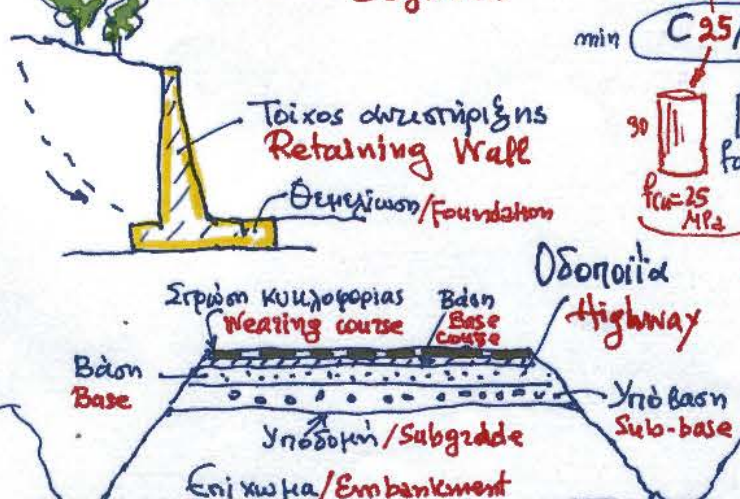 min C 25/
Τοίχος αντιστήριξης
Retaining Wall
30
fcu=25
MPa
Θεμελίωση/Foundation
Οδοποιΐα
Highway
Στρώση κυκλοφορίας
Wearing course
Βάση
Base
course
Βάση
Base
Υπόβαση
Sub-base
Υποδομή/Subgrade
Επίχωμα/Embankment